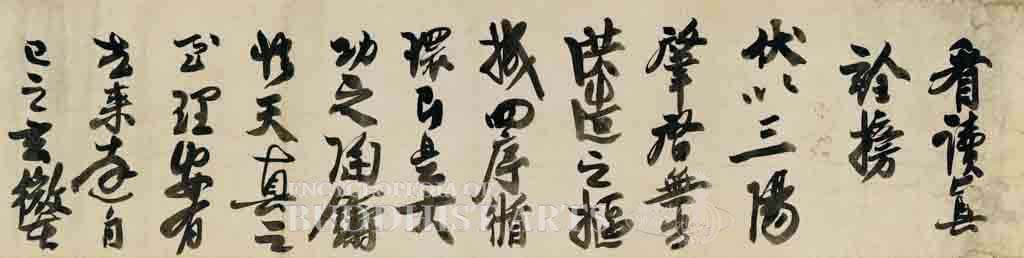 看讀真
詮榜
伏以三陽
肇啓無言
洪造之樞
機四序循
環即是大
功之陶鑄
悟天真之
至理安有
去来達自
己之玄
ENCYCLOPEDIA OF
BUDDHIST ARTS